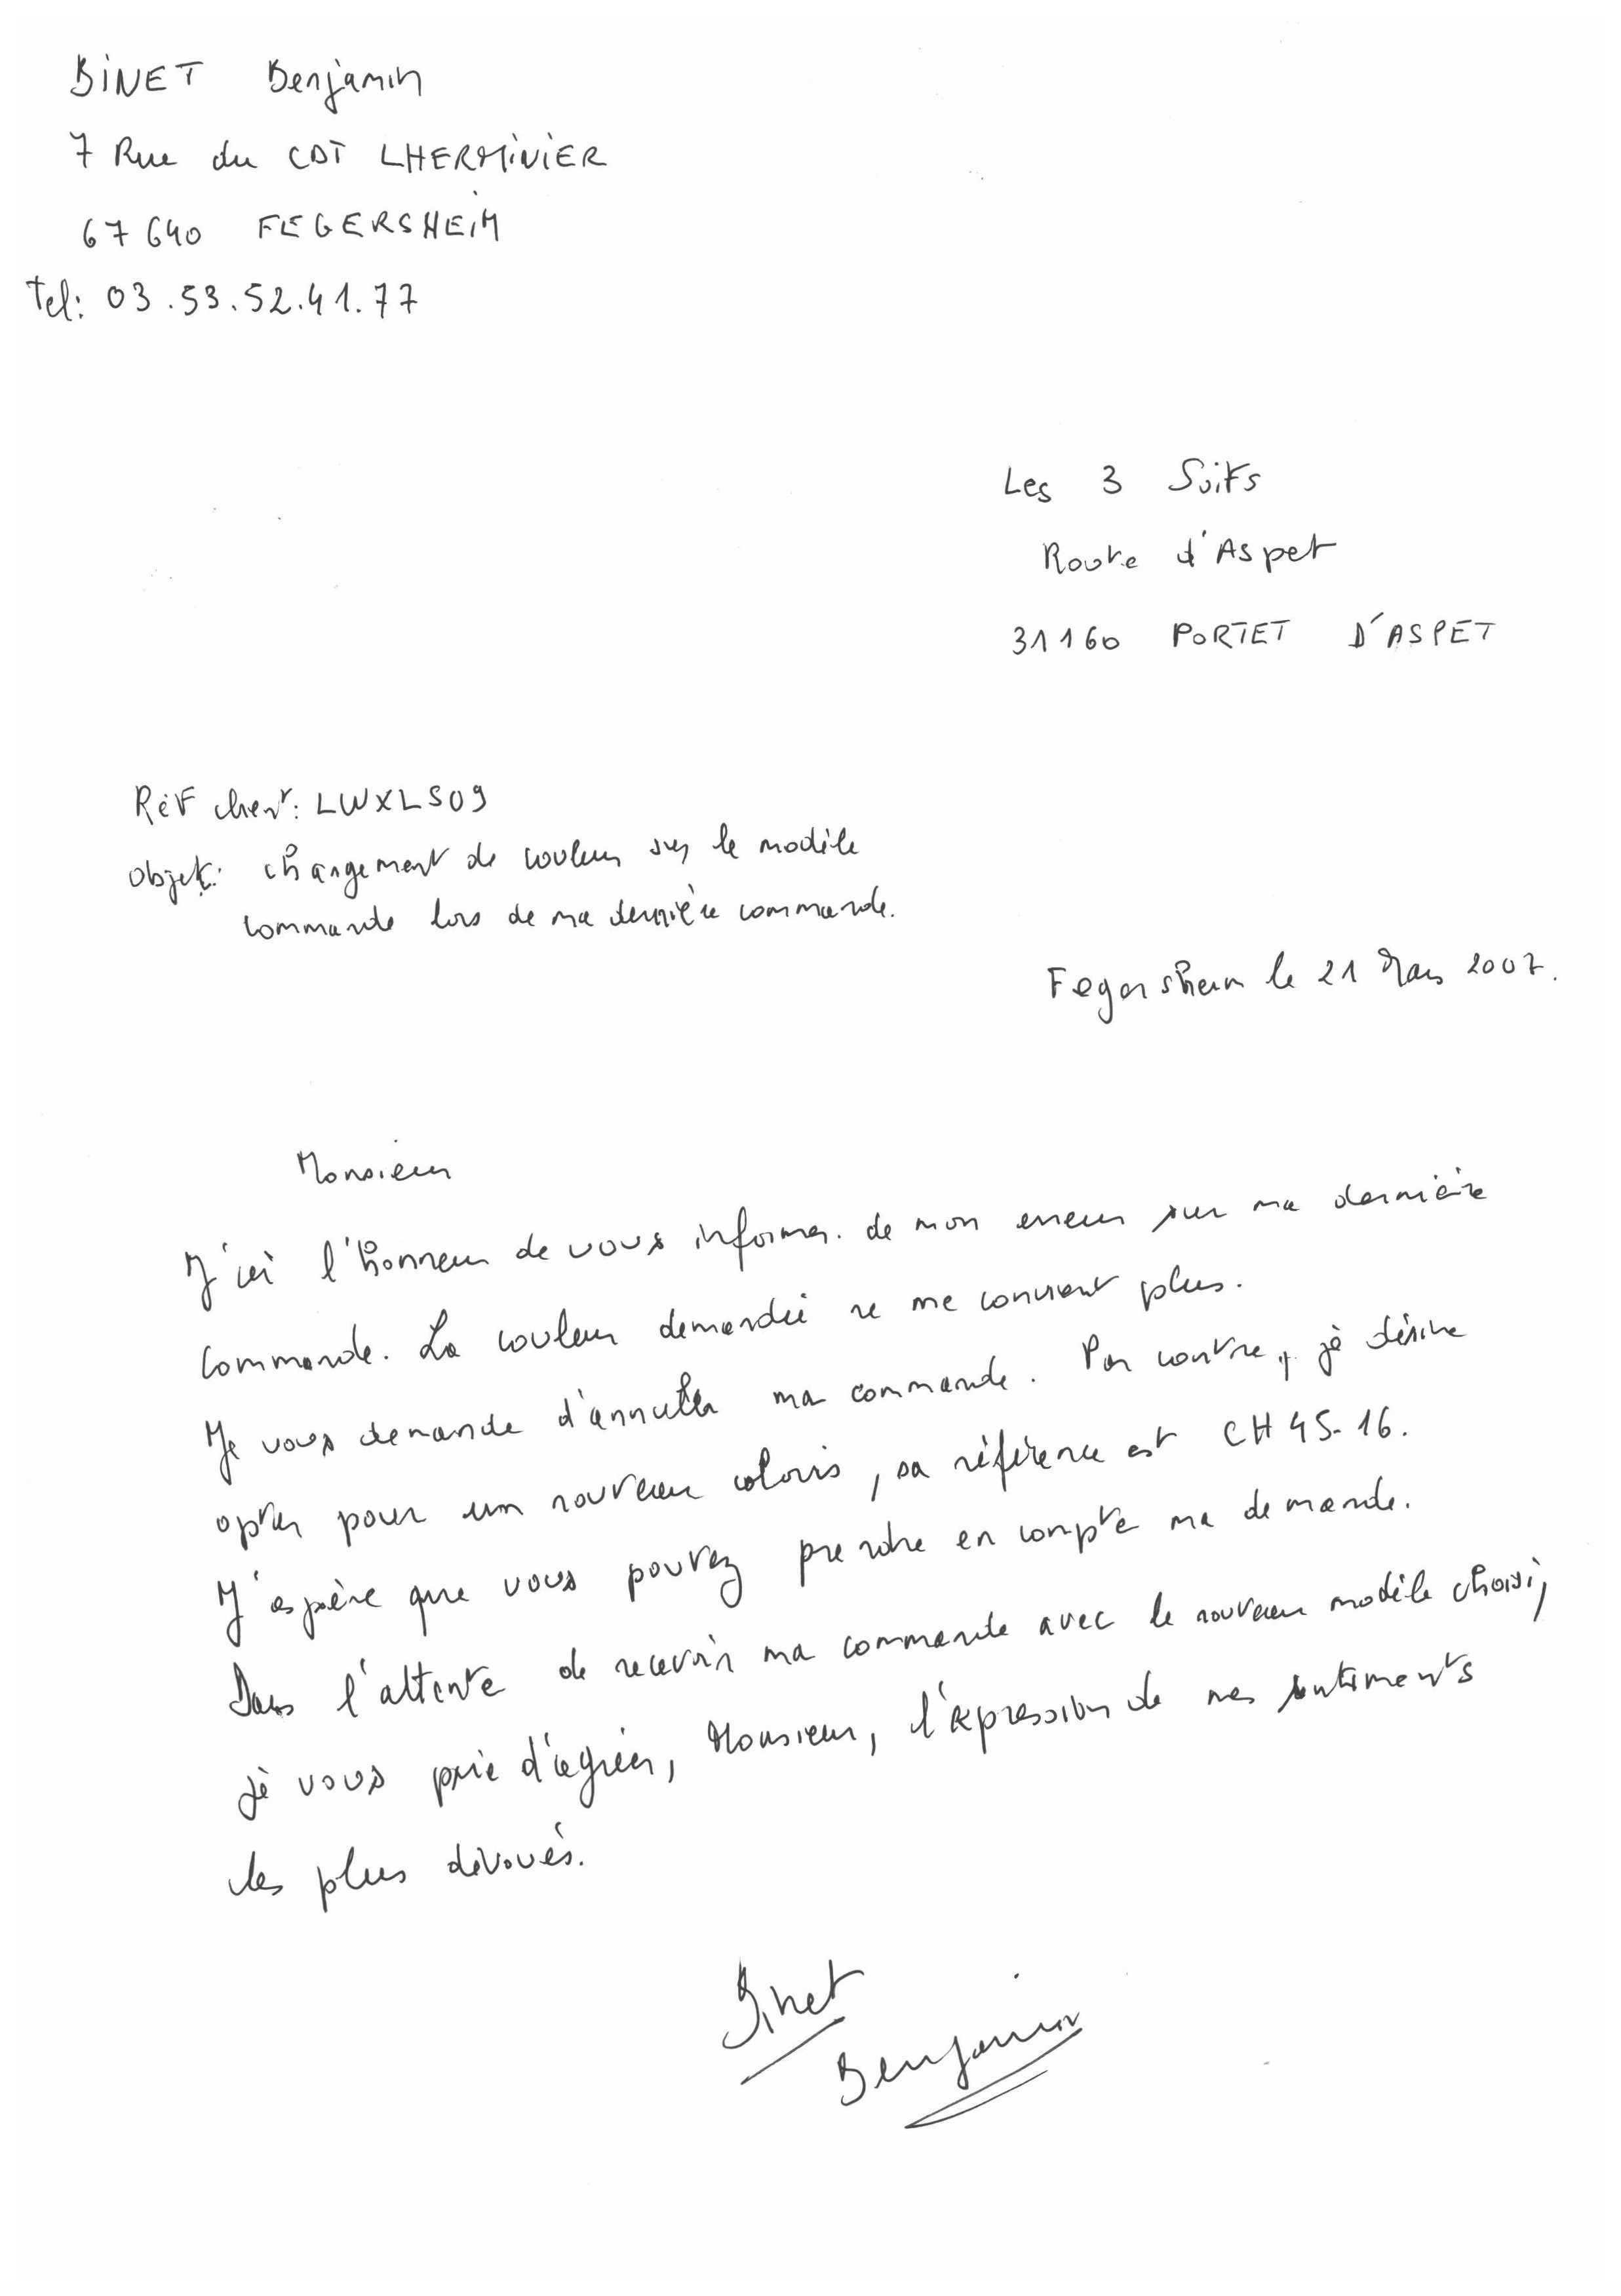 BINET Benjamin
7 Rue du CDT LHERMINIER
67640 FEGERSHEIM
Tel: 03.53.52.41.77
Les 3 Suits
Route d'Aspet
31160 PORTET D'ASPET
Réf client: LWXLS09
Objet: changement de couleur sur le modèle
commande lors de ma dernière commande.
Fegersheim le 21 Mars 2007.
Monsieur
J'ai l'honneur de vous informer de mon erreur sur ma dernière
commande. La couleur demandée ne me convient plus.
Je vous demande d'annuler ma commande. Par contre, je désire
opter pour un nouveau coloris, sa référence est CH45-16.
J'espère que vous pouvez prendre en compte ma demande.
Dans l'attente de recevoir ma commande avec le nouveau modèle choisi,
je vous prie d'agréer, Monsieur, l'expression de mes sentiments
les plus dévoués.
Binet
Benjamin